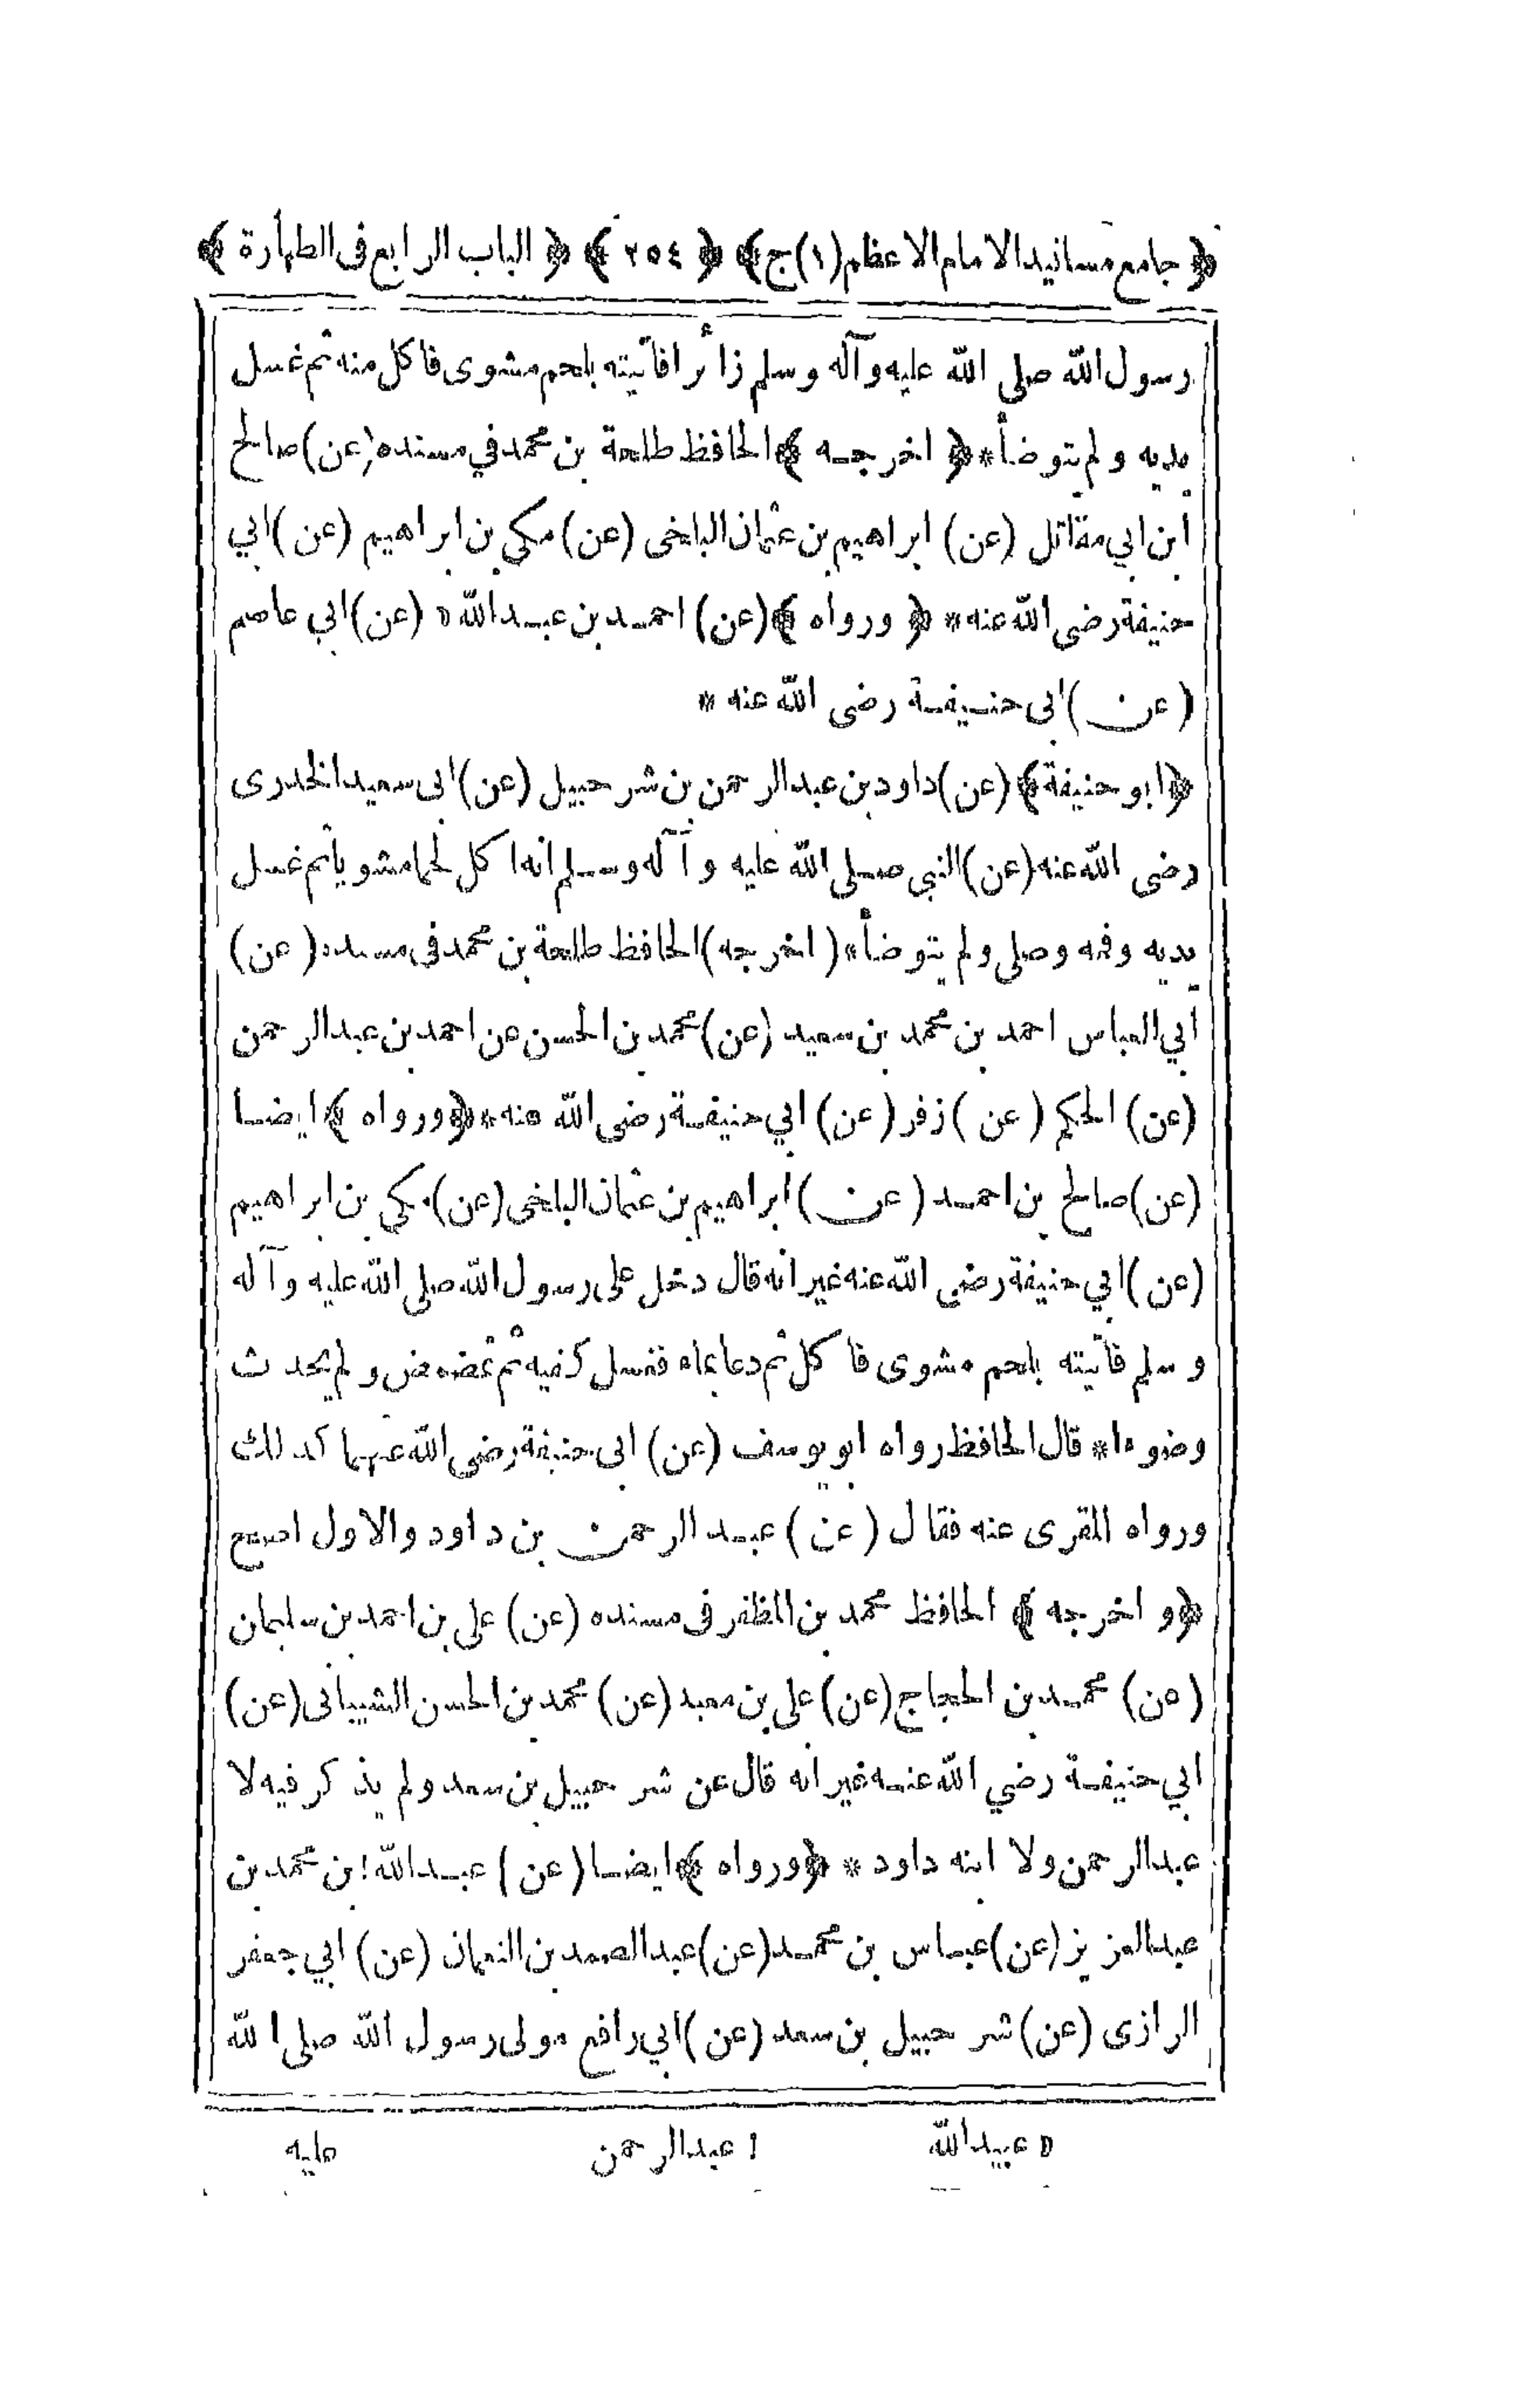 ﴿ جامع مسانيد الامام الاعظم (١) ج﴾ ﴿ ٢٥٤ ﴾ ﴿ الباب الرابع في الطهارة ﴾
رسول الله صلى الله عليه وآله وسلم زائرا فأتيته بلحم مشوى فاكل منه ثم غسل
يديه ولم يتوضأ * ﴿ اخرجه ﴾ الحافظ طلحة بن محمد في مسنده (عن) صالح
ابن ابي مقاتل (عن) ابراهيم بن عثمان البلخى (عن) مكي بن ابراهيم (عن) ابي
حنيفة رضى الله عنه * ﴿ ورواه ﴾ (عن) احمد بن عبد الله ٥ (عن) ابي عاصم
(عن) ابى حنيفة رضى الله عنه *
﴿ابو حنيفة﴾ (عن) داود بن عبد الرحمن بن شرحبيل (عن) ابى سعيد الخدرى
رضى الله عنه (عن) النبي صلى الله عليه وآله وسلم انه اكل لحما مشويا ثم غسل
يديه وفمه وصلى ولم يتوضأ * (اخرجه) الحافظ طلحة بن محمد في مسنده (عن)
ابي العباس احمد بن محمد بن سعيد (عن) محمد بن الحسن عن احمد بن عبد الرحمن
(عن) الحكم (عن) زفر (عن) ابي حنيفة رضى الله عنه * ﴿ورواه﴾ ايضا
(عن) صالح بن احمد (عن) ابراهيم بن عثمان البلخى (عن) مكي بن ابراهيم
(عن) ابي حنيفة رضى الله عنه غير انه قال دخل على رسول الله صلى الله عليه وآله
وسلم فأتيته بلحم مشوى فاكل ثم دعا بماء فغسل كفيه ثم تمضمض ولم يحدث
وضوءا * قال الحافظ رواه ابو يوسف (عن) ابى حنيفة رضى الله عنهما كذلك
ورواه المقرى عنه فقال (عن) عبد الرحمن بن داود والاول اصح
﴿واخرجه﴾ الحافظ محمد بن المظفر فى مسنده (عن) على بن احمد بن سليمان
(عن) محمد بن الحجاج (عن) على بن معبد (عن) محمد بن الحسن الشيبانى (عن)
ابي حنيفة رضي الله عنه غير انه قال عن شرحبيل بن سعد ولم يذكر فيه لا
عبد الرحمن ولا ابنه داود * ﴿ورواه﴾ ايضا (عن) عبد الله ! بن محمد بن
عبد العزيز (عن) عباس بن محمد (عن) عبد الصمد بن النعمان (عن) ابي جعفر
الرازى (عن) شرحبيل بن سعد (عن) ابي رافع مولى رسول الله صلى الله
٥ عبيد الله ! عبد الرحمن عليه